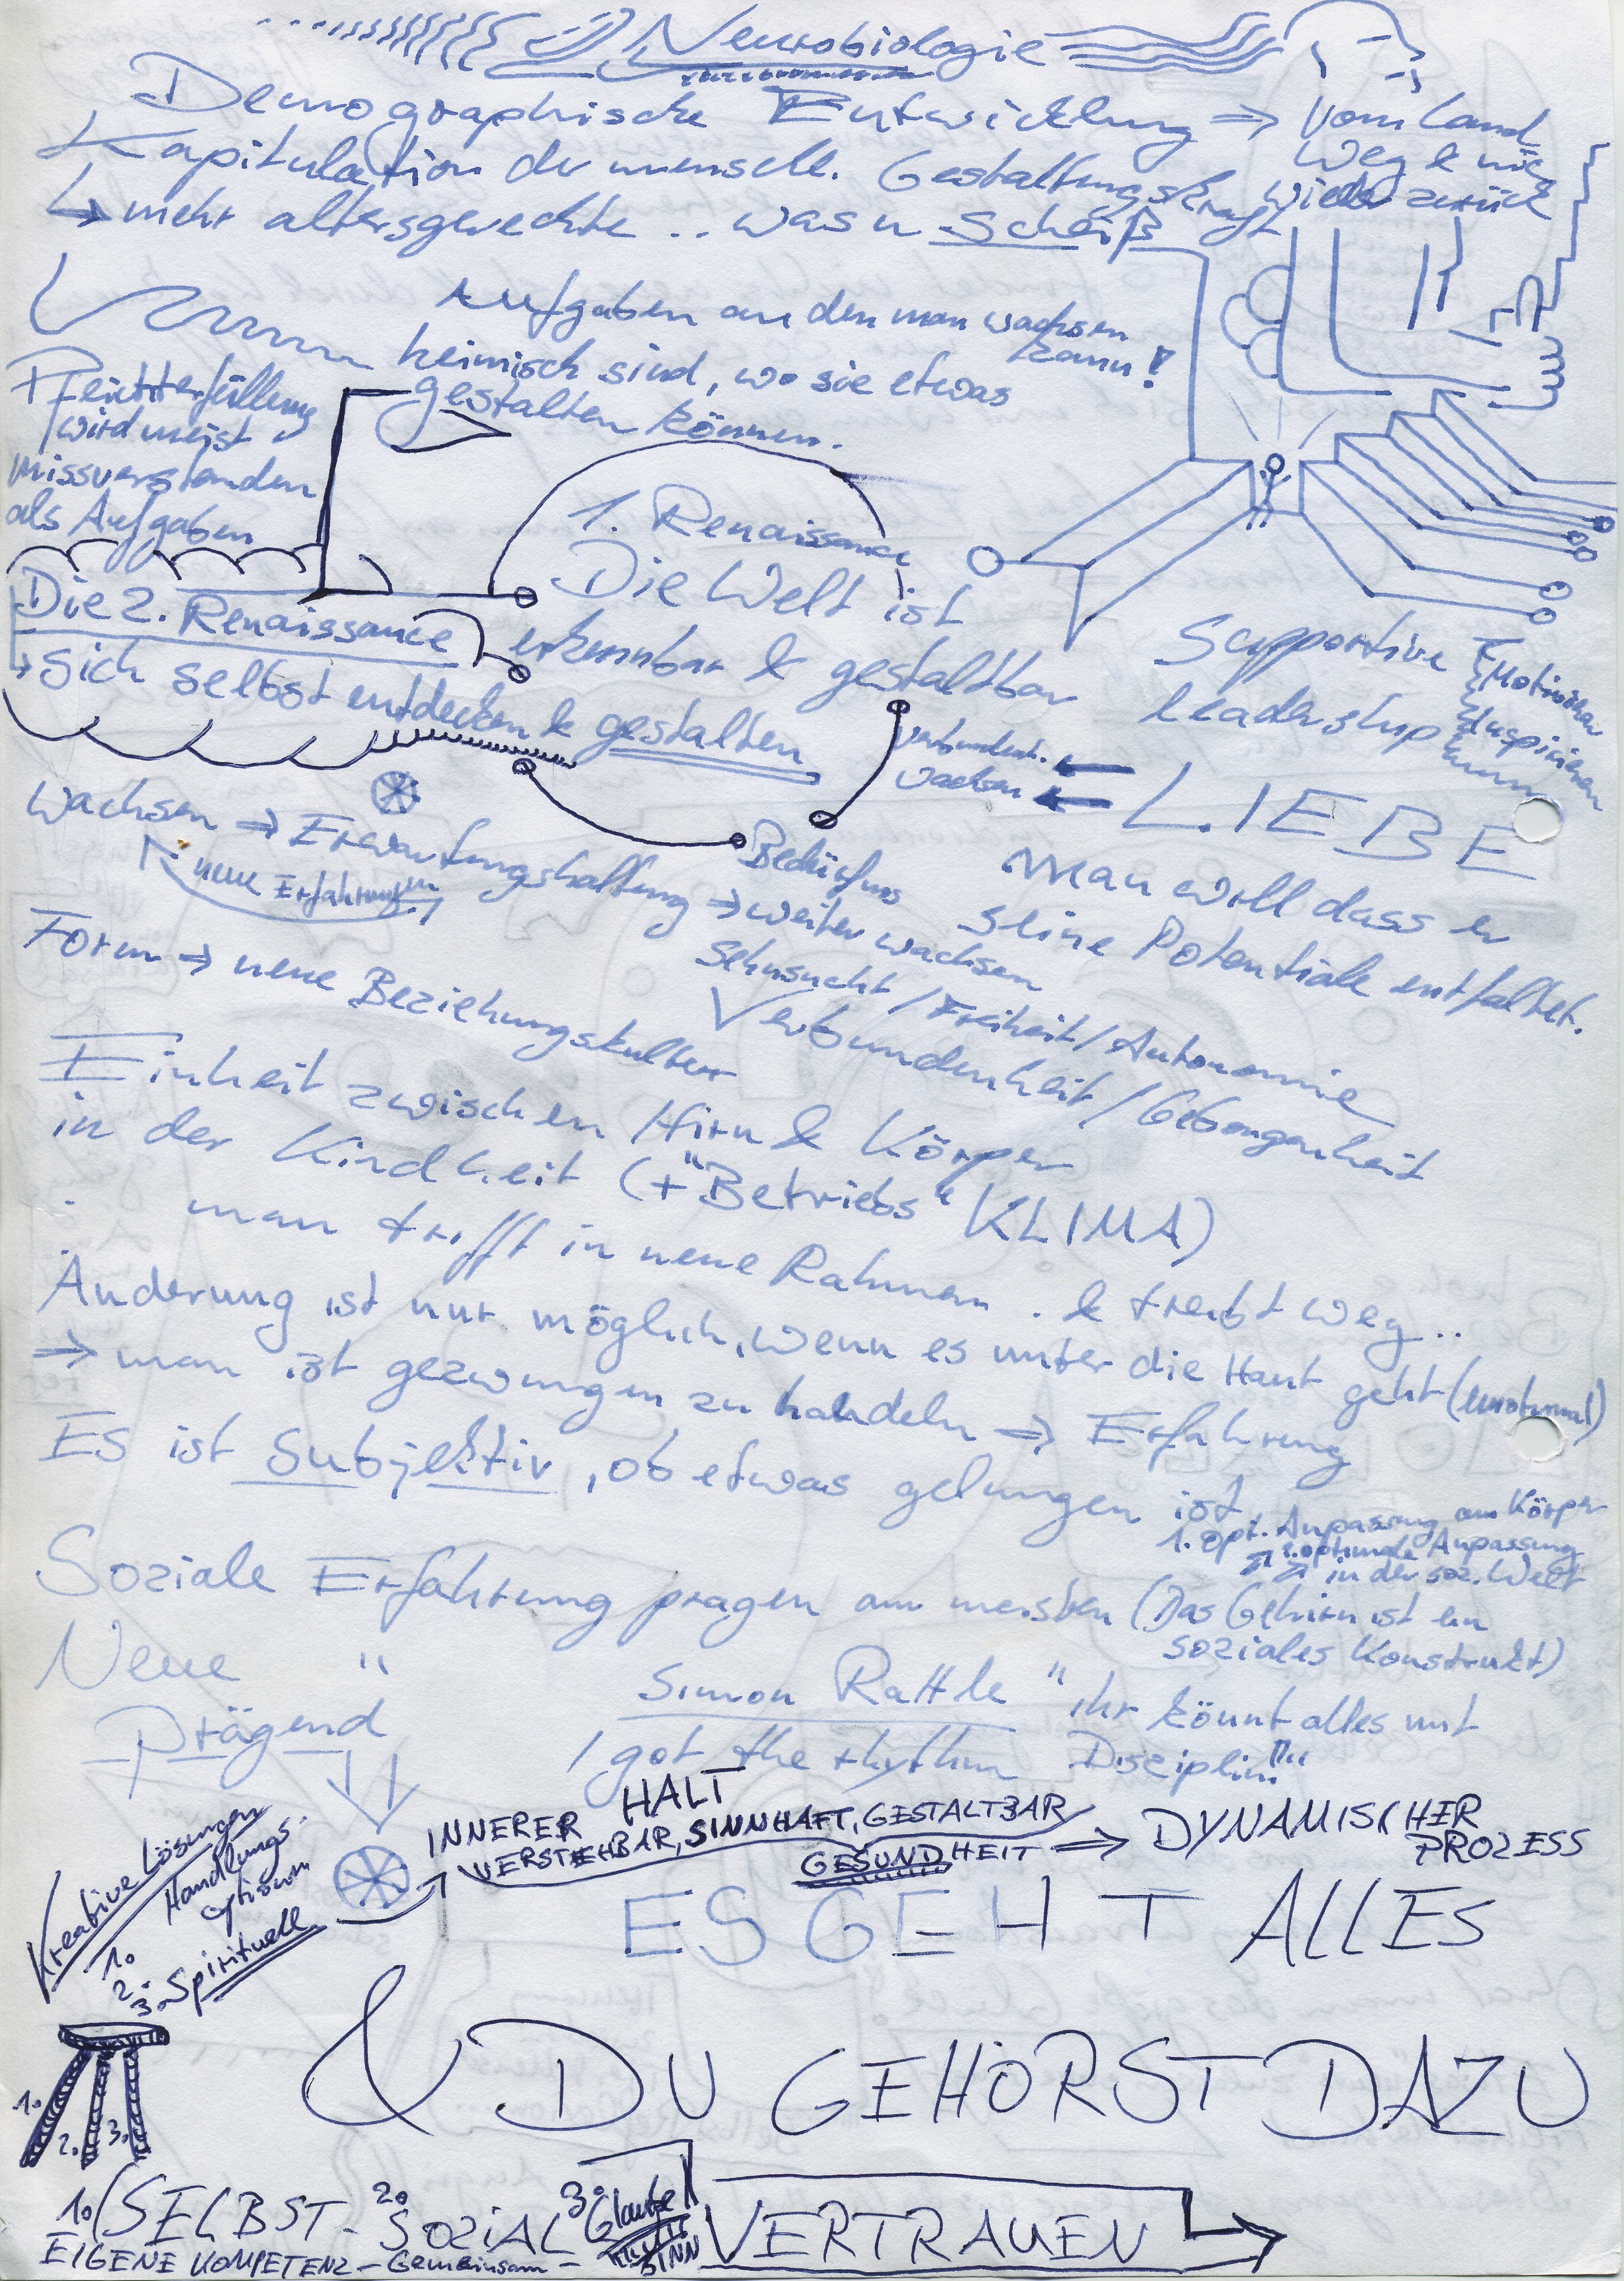 Neurobiologie
Demographische Entwicklung ⇒ vom Land
weg & nie
wieder zurück
Kapitulation der menschl. Gestaltungskraft
↳ mehr altersgerechte .. was n Scheiß
Aufgaben an den man wachsen
kann!
heimisch sind, wo sie etwas
gestalten können.
Pflichterfüllung
wird meist
missverstanden
als Aufgaben
1. Renaissance
Die Welt ist
erkennbar & gestaltbar
Die 2. Renaissance
↳ sich selbst entdecken & gestalten
Supportive
Leadership
Motivieren
Inspirieren
verbunden.
wachsen
← LIEBE
Man will dass er
seine Potentiale entfaltet.
Wachsen ⇒ Erwartungshaltung ⇒ weiter wachsen
neue Erfahrungen
Bedürfnis
Sehnsucht / Freiheit / Autonomie
Verbundenheit / Geborgenheit
Form ⇒ neue Beziehungskultur
Einheit zwischen Hirn & Körper
in der Kindheit (+"Betriebs" KLIMA)
man trifft in neue Rahmen . & treibt weg ..
Änderung ist nur möglich, wenn es unter die Haut geht (emotional)
⇒ man ist gezwungen zu handeln ⇒ Erfahrung
Es ist Subjektiv, ob etwas gelungen ist
1. opt. Anpassung am Körper
2. optimale Anpassung
in der soz. Welt
Soziale Erfahrung prägen am meisten (Das Gehirn ist ein
soziales Konstrukt)
Neue "
Prägend
Simon Rattle "ihr könnt alles mit
Disziplin!"
I got the rhythm
Kreative Lösungen
Handlungs.
optionen
1.
2.
3. Spirituell
INNERER HALT
VERSTEHBAR, SINNHAFT, GESTALTBAR
GESUNDHEIT ⇒ DYNAMISCHER
PROZESS
ES GEHT ALLES
& DU GEHÖRST DAZU
1.
2.
3.
1. SELBST- 2. SOZIAL 3. Glaube VERTRAUEN
EIGENE KOMPETENZ - Gemeinsam - SINN